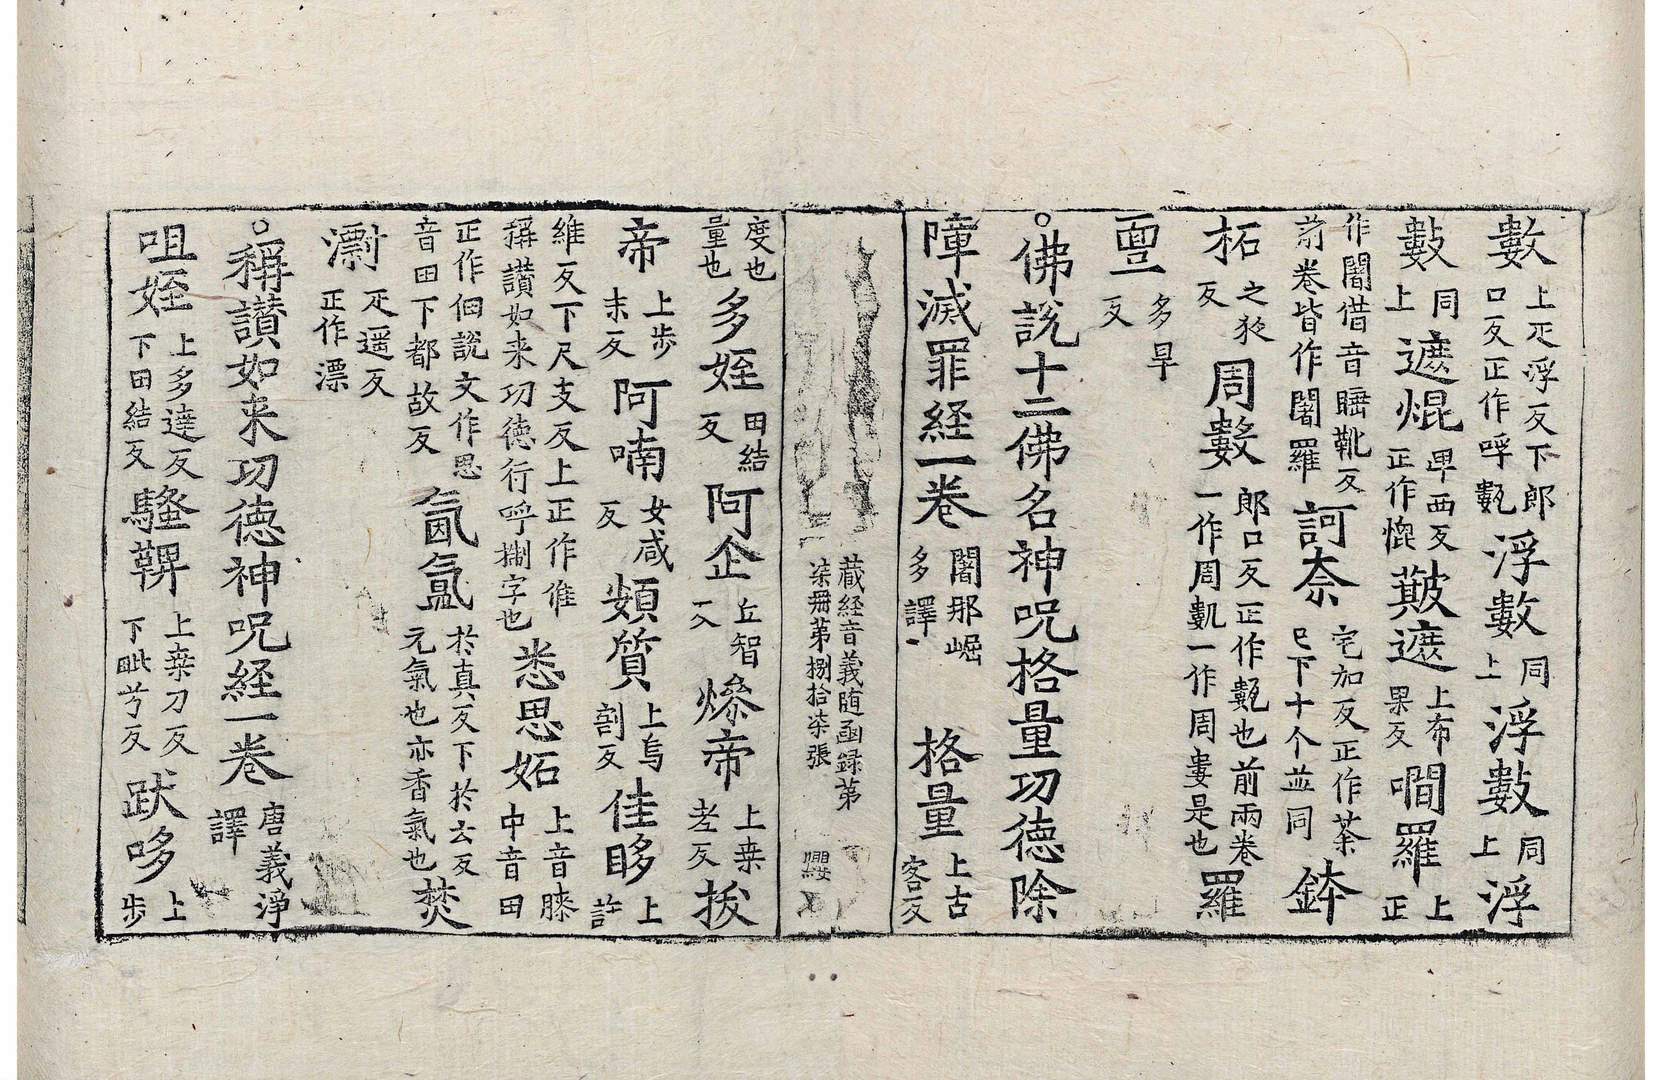 數上疋浮反下郎口反正作呼㲉浮數同上浮數同上浮
數同上遮焜卑西反正作㥧䕎遮上布果反㗴羅上正
作闍借音睡靴反前卷皆作闍羅訶奈宅加反正作荼皀下十个並同鉢
柘之夜反周數郎口反正作㲉也前兩卷一作周㲉一作周婁是也羅
亶多旱反
。佛說十二佛名神呪格量功德除
障滅罪経一卷闍那崛多譯格量上古客反
蔵経音義随函録第柒冊第捌拾柒張 纓
度也量也多姪田結反阿企丘智反㷮帝上桒老反拔
帝上步末反阿喃女咸反頞質上烏割反隹眵上許
維反下尺支反上正作倠悉思妬上音膝中音田
稱讃如来功徳行呼㨷字也
正作佃說文作思音田下都故反氤氲於真反下於云反元氣也亦香氣也焚
㵸疋遥反正作漂
。稱讃如来功徳神呪経一卷唐義淨譯
咀姪上多達反下田結反騷鞞上桒刀反下毗兮反跃哆上步